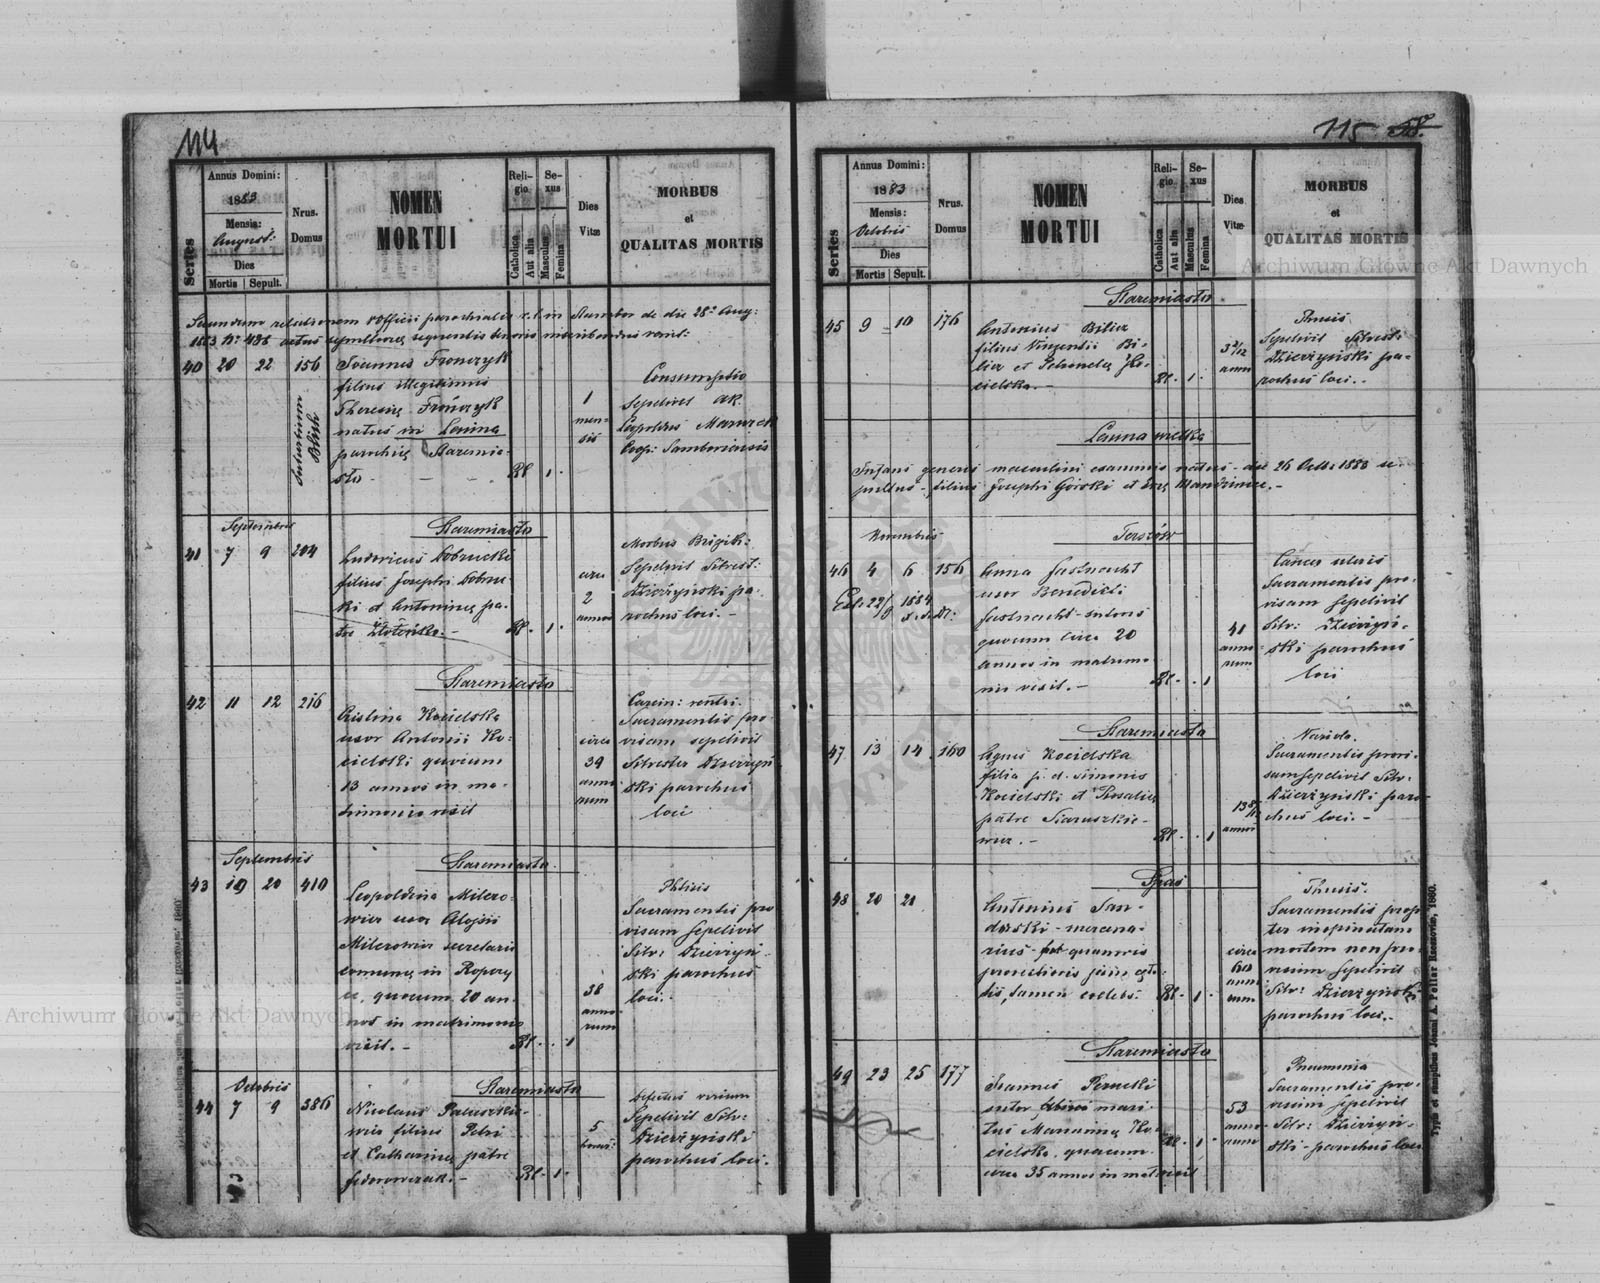 114
Annus Domini:
1883
Mensis:
August:
Dies
Mortis Sepult.
Series
Nrus. Domus
NOMEN
MORTUI
Religio
Catholica
Aut alia
Sexus
Masculus
Femina
Dies Vitæ
MORBUS
et
QUALITAS MORTIS
Secundum relationem Officii parochialis r. l. in Sambor de die 28a Aug:
1883 Nr 488 actus sequentis tenoris
40 20 22 156 Joannes Fronczyk
filius illegitimus
Theresiæ Frończyk
natus in Lenina
parochiæ Staremia-
sto - - - RL 1
1
men-
sis
Consumptio
Sepelivit AR.
Leopoldus
Coop: Samboriensis
Septembris
Staremiasto
41 7 9 204 Ludovicus Dobrucki
filius Josephi Dobru
ki et Antoninæ pa-
tre RL - 1
circa
2
annos
Morbus Brigth:
Sepelivit Silvest:
Dzierżyński pa-
rochus loci. -
Staremiasto
42 11 12 216
Cristina Kocielska
uxor Antonii Ko-
cielski quocum
13 annos in ma-
trimonio vixit
circa
39
anno
rum
Carcin: ventri.
Sacramentis pro-
visam sepelivit
Silvester Dzierżyń
ski parochus
loci
Septembris
Staremiasto
43 19 20 410
Leopoldina Milero-
wicz uxor Alojsii
Milerowicz secretarii
comunæ in
quocum 20 an-
nos in matrimonio
vixit. - RL - . 1
38
anno-
rum
Phtisis
Sacramentis pro
visam sepelivit
Silv: Dzierżyń-
ski parochus
loci.
Octobris
Staremiasto
44 7 9 386
Nicolaus Paluszkie-
wicz filius Petri
et Catharinæ patre
Fedorowczak. - RL - 1
5
defectus virium
Sepelivit Silv:
Dzierżyński
parochus loci.
115 58.
Annus Domini:
1883
Mensis:
Octobris
Dies
Mortis Sepult.
Series
Nrus Domus
NOMEN
MORTUI
Religio
Catholica
Aut alia
Sexus
Masculus
Femina
Dies Vitæ
MORBUS
et
QUALITAS MORTIS
Staremiasto
45 9 - 10 176
Antonius
filius Vincentii
et Petronelæ Ko-
cielska. - RL - 1
3 2/12
anno
Phtisis
Sepelivit Silvest:
Dzierżyński pa-
rochus loci. -
Lenina wielka
Infans generis masculini exanimis natus - die 26 Octb: 1883 se-
pultus - filius Josephi Górski et
Novembris
Terszów
46 4 6 156
Anna Fastnacht
uxor Benedicti
Fastnacht - sutoris
quocum circa 20
annos in matrimo
nio vixit. - RL - . 1
41
anno-
rum
Cancer uteris
Sacramentis pro-
visam sepelivit
Silv: Dzierżyń-
ski parochus
loci
Staremiasto
47 13 14 160
Agnes Kocielska
filia p. d. Simonis
Kocielski et Rosaliæ
patre Staruszkie-
wicz. - RL - . 1
13 8/12
annor
Variola.
Sacramentis provi-
sam sepelivit Silv:
Dzierżyński paro-
chus loci. -
Spas
48 20 21
Antonius San-
dorski - mercena-
rius - quamvis
provectioris jam æta-
tis, tamen celebs: RL - 1
circa
60
anno
rum
Phtisis.
Sacramentis prop-
ter inopinatam
mortem non pro-
visum sepelivit
Silv: Dzierżyński
parochus loci. -
Staremiasto
49 23 25 177
Joannes Perucki
sutor, mari-
tus Mariannæ Ko-
cielska, quocum
circa 35 annos in mat: vixit
RL - 1
53
anno-
rum
Pneumonia
Sacramentis pro-
visum sepelivit
Silv: Dzierżyń-
ski - parochus loci
Typis et sumptibus Joanni A. Pellar Rzeszoviæ, 1860.
Archiwum Główne Akt Dawnych
Archiwum Główne Akt Dawnych